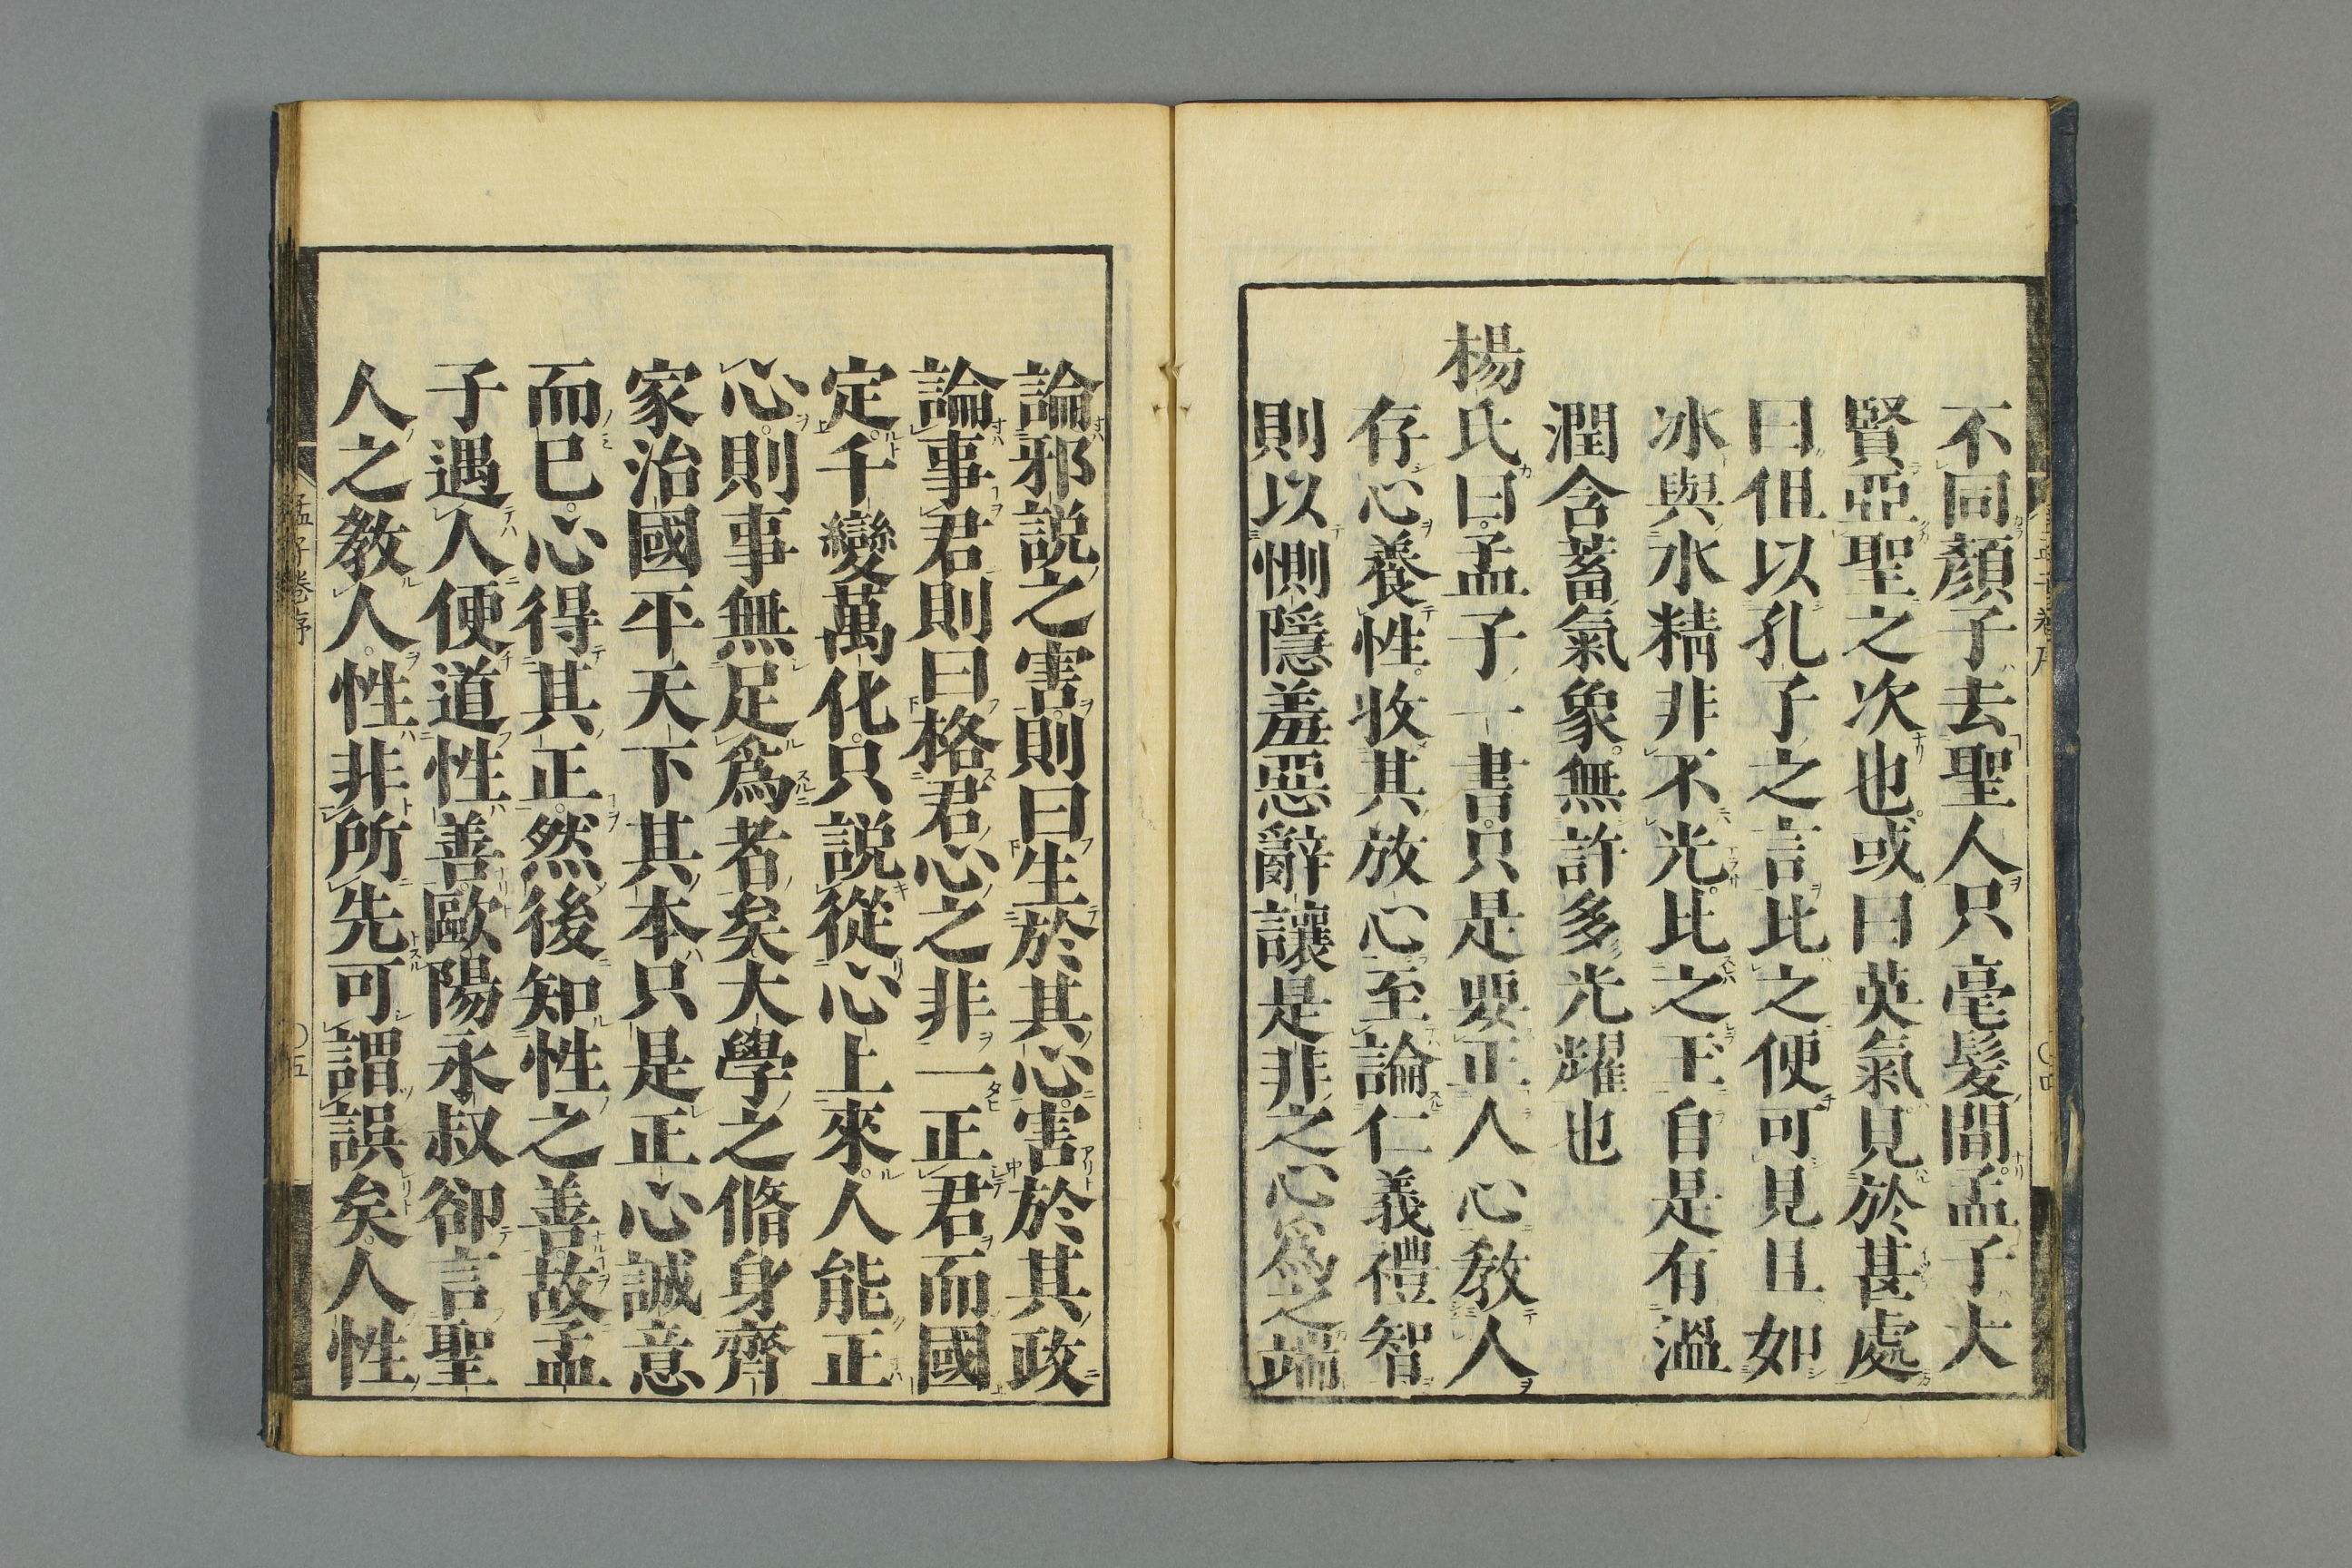 不同顏子去聖人只亳髮間孟子大
賢亞聖之次也或曰英氣見於甚處
曰但以孔子之言比之便可見且如
冰與水精非不光比之玉自是有溫
潤含蓄氣象無許多光耀也
楊氏曰孟子一書只是要正人心教人
存心養性收其放心至論仁義禮智
則以惻隱羞惡辭讓是非之心爲之端
論邪説之害則曰生於其心害於其政
論事君則曰格君心之非一正君而國
定千變萬化只説從心上來人能正
心則事無足爲者矣大學之脩身齊
家治國平天下其本只是正心誠意
而已心得其正然後知性之善故孟
子遇人便道性善歐陽永叔卻言聖
人之教人性非所先可謂誤矣人性
孟子卷序
〇五